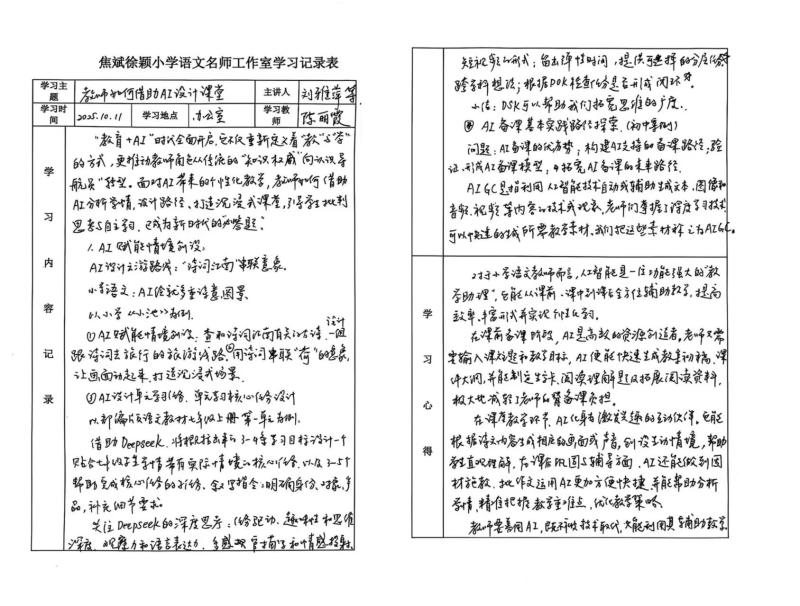 焦斌徐颖小学语文名师工作室学习记录表
学习主题 教师如何借助AI设计课堂 主讲人 刘雅萍等
学习时间 2025.10.11 学习地点 办公室 学习教师 陈丽霞
学习内容记录
"教育+AI"时代全面开启,它不仅重新定义着"教"与"学"
的方式,更推动教师角色从传统的"知识权威"向认识导
航员"转型。面对AI带来的个性化教学,教师如何借助
AI分析学情、设计路径、打造沉浸式课堂,引导学生批判
思考与自主学习,已成为新时代的必答题。
1. AI赋能情境创设。
AI设计主游路线:"诗词江南"串联意象。
小学语文:AI绘就多重诗意图景
以小学《小池》为例.
①AI赋能情境创设。查和诗词江南有关的古诗,设计一组
跟诗词去旅行的旅游线路,用诗词串联"荷"的意象,
让画面动起来,打造沉浸式场景.
②AI设计单元学习任务,单元学习核心任务设计
以部编版语文教材七年级上册第一单元为例.
借助Deepseek,将根据给出来的3-4条学习目标设计一个
贴合七年级学生学情带有实际情境的核心任务,以及3-5个
帮助完成核心任务的子任务. 指令:明确身份、对象、产
品,补充细节要求。
关注Deepseek的深度思考:任务驱动、趣味性和思维
深度、观察力和语言表达力、多感
短视频的形式;留出弹性时间,提供可选择的分层任务
跨学科想法;根据DOK检查任务是否形成闭环。
小结:DSK可以帮助我们拓宽思维的广度.
AI备课基本实践路径探索.(初中案例)
问题:AI备课的优劣势;构建AI支持的备课路径;验
证、形成AI备课模型,4拓宽AI备课的未来路径.
AIGC是指利用人工智能技术自动或辅助生成文本、图像和
音频、视频等内容的技术或现象.老师们掌握了深度学习技术,
可以快速的生成所需要教学素材.我们把这些素材称之为AIGC.
学习心得
对于小学语文教师而言,人工智能是一位功能强大的"教
学助理",它能从课前、课中到课后全方位辅助教学,提高
效率、丰富形式并实现个性化学习.
在课前备课阶段,AI是高效的资源创造者。老师只需
要输入课文主题和教学目标,AI便能快速生成教案初稿、课
件大纲,并能制定生字卡、阅读理解题及拓展阅读资料,
极大地减轻了老师的备课负担。
在课堂教学环节,AI化身为激发兴趣的互动伙伴。它能
根据语文内容生成相应的画面或声音,创设互动情境,帮助
学生直观理解。在课后巩固与辅导方面,AI还能做到因
材施教。批作文运用AI更加方便快捷,并能帮助分析
学情,精准把握教学重难点,优化教学策略.
教师要善用AI,既不被技术取代,又能利用其辅助教学